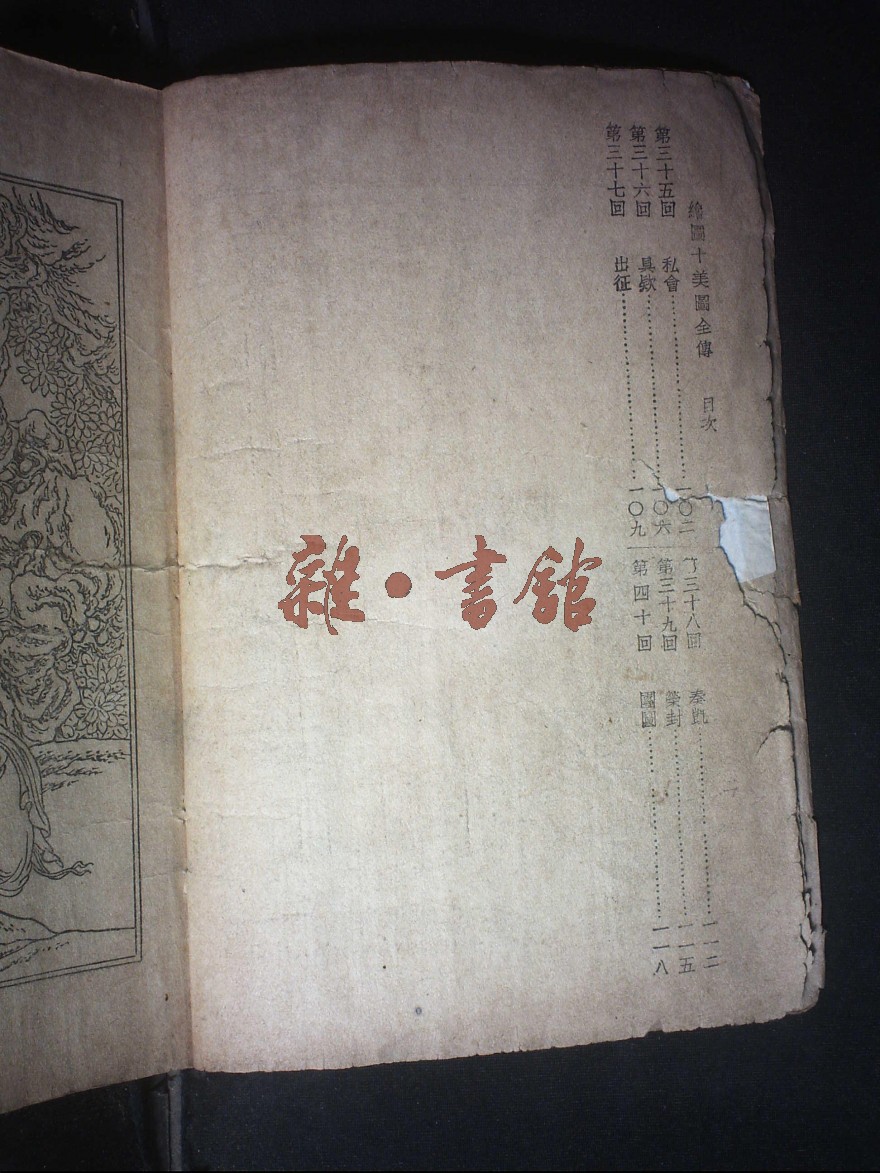 繪圖十美圖全傳 目次
第三十五回 私會……………………一〇二
第三十六回 具欵……………………一〇六
第三十七回 出征……………………一〇九
三十八回 奏凱……………………一一二
第三十九回 榮封……………………一一五
第四十回 團圓……………………一一八
雜·書館